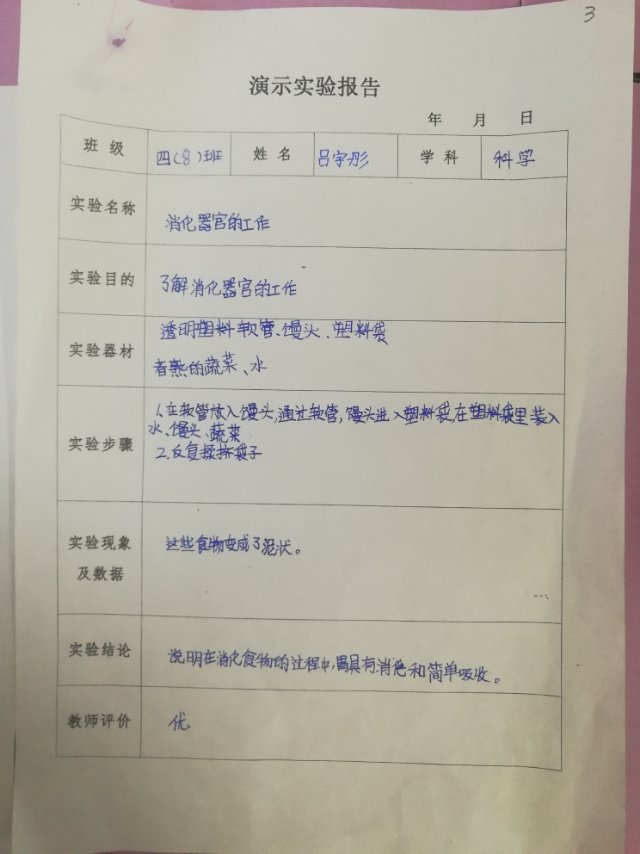 3
演示实验报告
年 月 日
班级 四(8)班 姓名 吕宇彤 学科 科学
实验名称 消化器官的工作
实验目的 了解消化器官的工作
实验器材 透明塑料软管、馒头、塑料袋
煮熟的蔬菜、水
实验步骤 1.在软管放入馒头,通过软管,馒头进入塑料袋在塑料袋里装入
水、馒头、蔬菜
2.反复揉挤袋子
实验现象
及数据 这些食物变成了泥状。
实验结论 说明在消化食物的过程中,胃具有消化和简单吸收。
教师评价 优